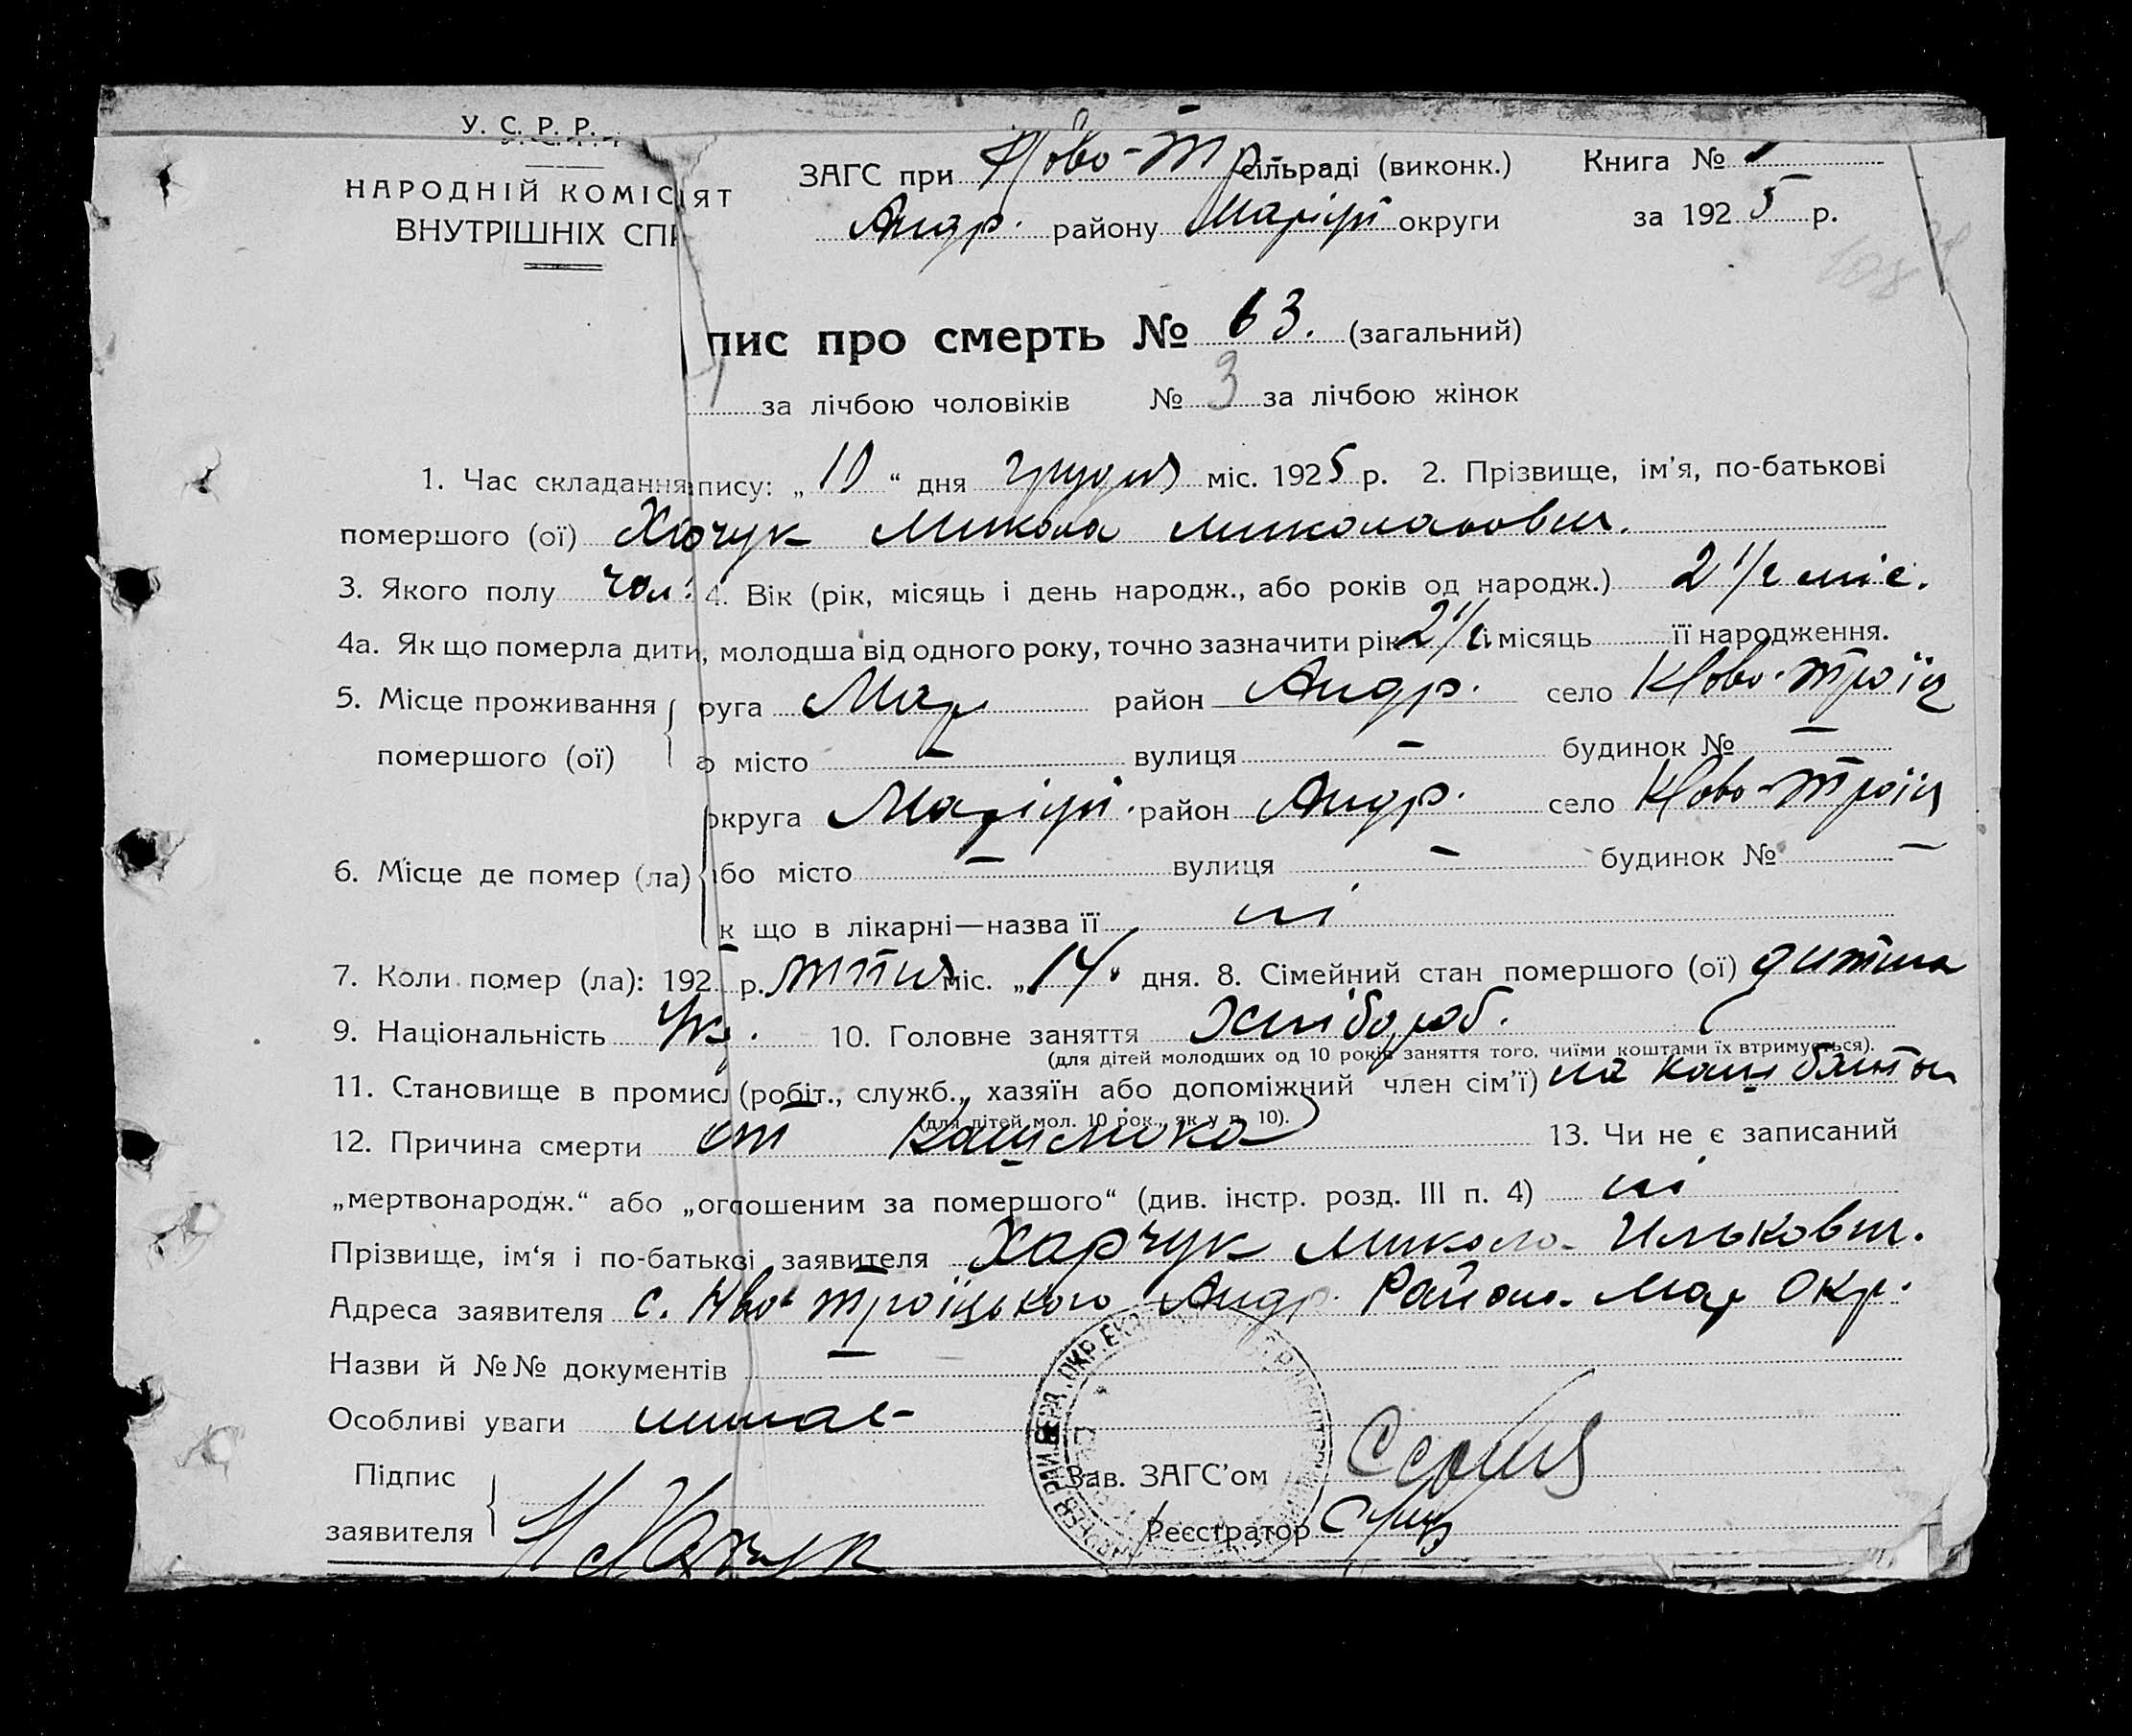 У. С. Р. Р.
НАРОДНІЙ КОМІСІЯТ
ВНУТРІШНІХ СПР
ЗАГС при Ново-Тр сільраді (виконк.) Книга №
Андр. району Маріуп округи за 1925 р.
пис про смерть № 63. (загальний)
за лічбою чоловіків № 3 за лічбою жінок
1. Час складання пису: „10“ дня грудня міс. 1925 р. 2. Прізвище, ім’я, по-батькові
помершого (ої) Харчук Микола Миколайович.
3. Якого полу чол. 4. Вік (рік, місяць і день народж., або років од народж.) 2 1/2 міс.
4а. Як що померла дити, молодша від одного року, точно зазначити рік 2 1/2 і місяць її народження.
5. Місце проживання руга Мар район Андр. село Ново-Троїц
помершого (ої) о місто — вулиця — будинок № —
округа Маріуп. район Андр. село Ново-Троїц
6. Місце де помер (ла) бо місто — вулиця — будинок № —
к що в лікарні—назва її ні
7. Коли помер (ла): 192 р. міс. „14“ дня. 8. Сімейний стан помершого (ої) дитина
9. Національність Укр. 10. Головне заняття Хлібороб.
(для дітей молодших од 10 років заняття того, чиїми коштами їх втримується).
11. Становище в промисл (робіт., служб., хазяїн або допоміжний член сім’ї) на
(для дітей мол. 10 рок., як у п. 10).
12. Причина смерти от кашлюка 13. Чи не є записаний
„мертвонародж.“ або „оголошеним за помершого“ (див. інстр. розд. III п. 4) ні
Прізвище, ім‘я і по-батькові заявителя Харчук Микола Илькович.
Адреса заявителя с. Ново Троїцького Андр. Району Мар Окр.
Назви й №№ документів —
Особливі уваги немає
Підпис Зав. ЗАГС’ом
заявителя Харчук Реєстратор